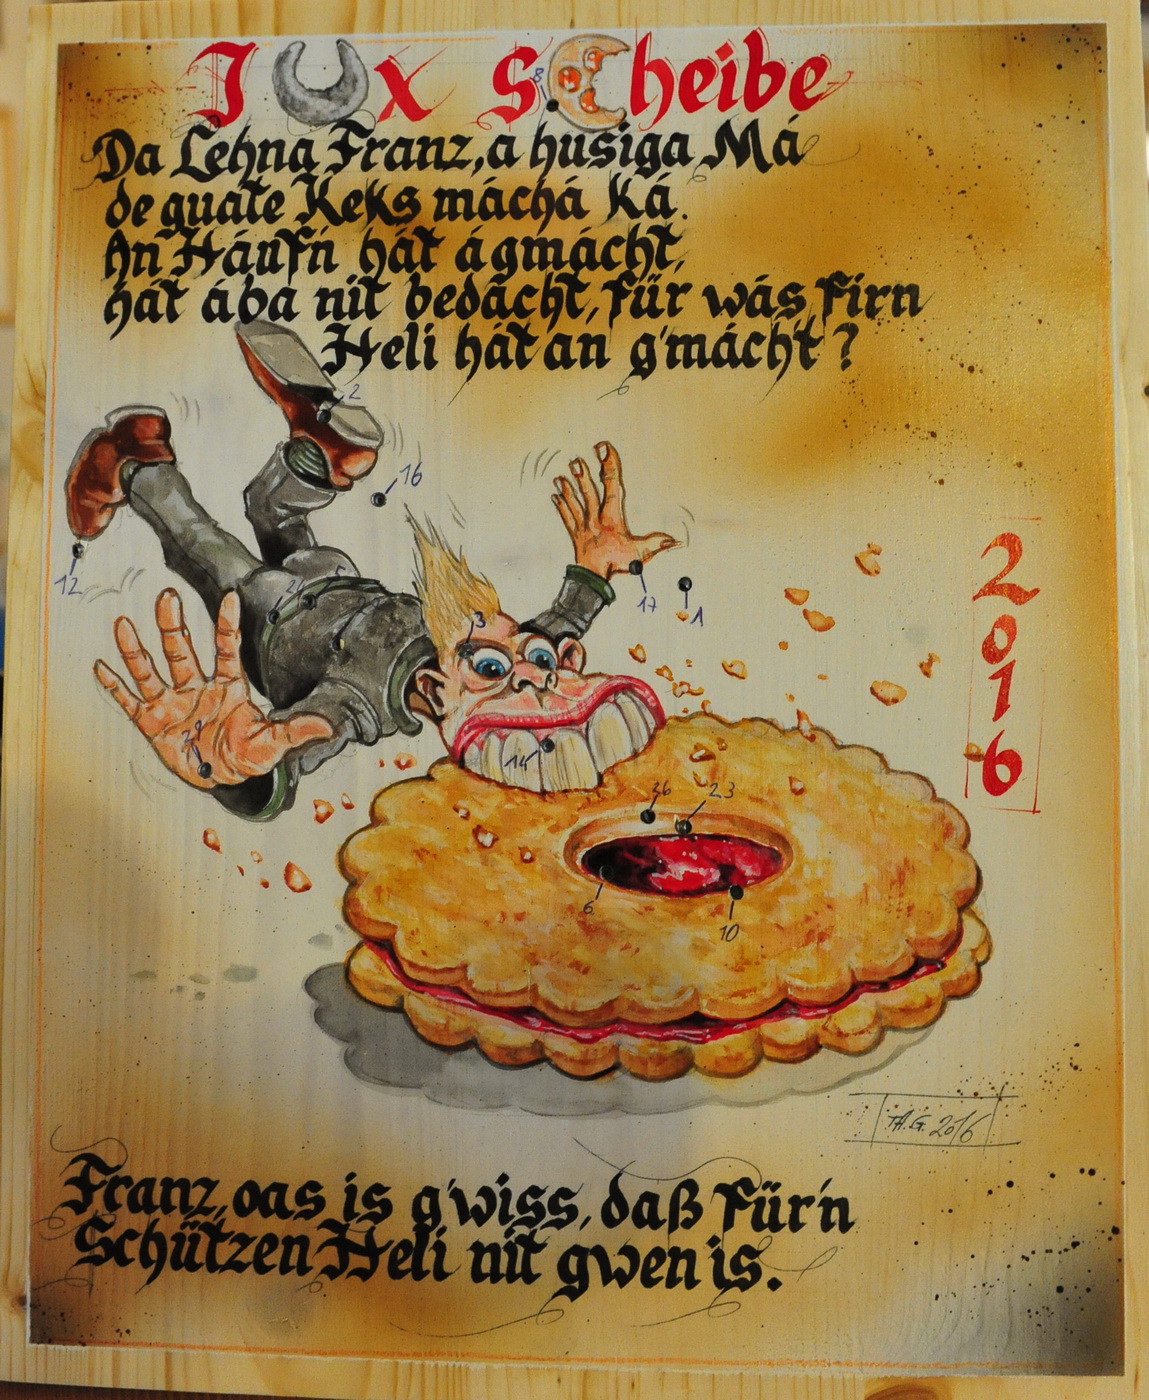 Jux Scheibe
Da Lehna Franz, a husiga Má
de guate Keks máchá Ká.
An Háufn hát á gmácht,
hát ába nit bedácht, für wás firn
Heli hát an g'mácht?
8
2
16
12
17
1
3
24
5
28
14
36
23
6
10
2016
H.G. 2016
Franz, oas is g'wiss, daß für'n
Schützen Heli nit gwen is.